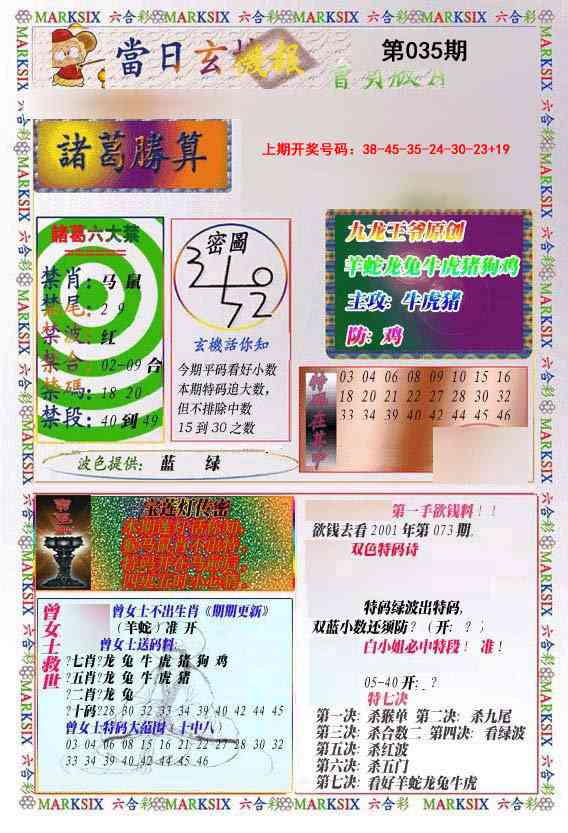 MARKSIX 六合彩 MARKSIX 六合彩 MARKSIX 六合彩 MARKSIX 六合彩
當日玄機報
第035期
諸葛勝算
上期开奖号码：38-45-35-24-30-23+19
諸葛六大禁
禁肖：马 鼠
禁尾：2 9
禁波：红
禁合：02-09 合
禁碼：18 20
禁段：40 到 49
密圖
玄機活你知
今期平码看好小数
本期特码追大数，
但不排除中数
15 到 30 之数
九龙王爷原创
羊蛇龙兔牛虎猪狗鸡
主攻: 牛虎猪
防: 鸡
特码在其中
03 04 06 08 09 10 15 16
18 20 21 22 27 28 30 32
33 34 39 40 42 44 45 46
波色提供： 蓝 绿
宝莲灯传密
曾女士救世
曾女士不出生肖《期期更新》
（羊蛇）准 开
曾女士送码料:
?七肖?龙 兔 牛 虎 猪 狗 鸡
?五肖?龙 兔 牛 虎 猪
?二肖?龙 兔
?十码?28 30 32 33 34 39 40 42 44 45
曾女士特码大范围（十中八）
03 04 06 08 15 16 21 22 27 28 30 32
33 34 39 40 42 44 45 46
第一手欲钱料！！
欲钱去看 2001 年第 073 期.
双色特码诗
特码绿波出特码,
双蓝小数还须防？（开: ？）
白小姐必中特段！ 准！
05-40 开: ?
特七决
第一决: 杀猴单 第二决: 杀九尾
第三决: 杀合数二 第四决: 看绿波
第五决: 杀红波
第六决: 杀五门
第七决: 看好羊蛇龙兔牛虎
MARKSIX 六合彩 MARKSIX 六合彩 MARKSIX 六合彩 MARKSIX 六合彩